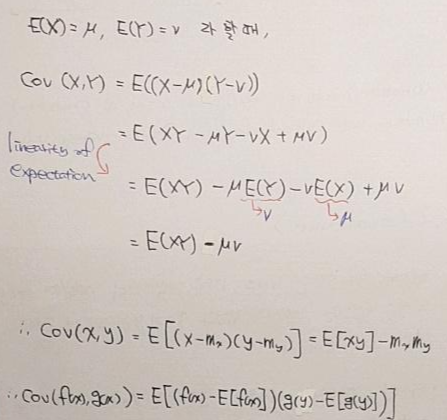 E(X) = μ, E(Y) = ν 라 할 때,
Cov (X,Y) = E((X-μ)(Y-ν))
= E(XY - μY - νX + μν)
linearity of
expectation
= E(XY) - μE(Y) - νE(X) + μν
↳ν ↳μ
= E(XY) - μν
∴ Cov(x,y) = E[(x-mₓ)(y-m_y)] = E[xy] - mₓm_y
∴ Cov(f(x),g(x)) = E[(f(x)-E[f(x)])(g(y)-E[g(y)])]